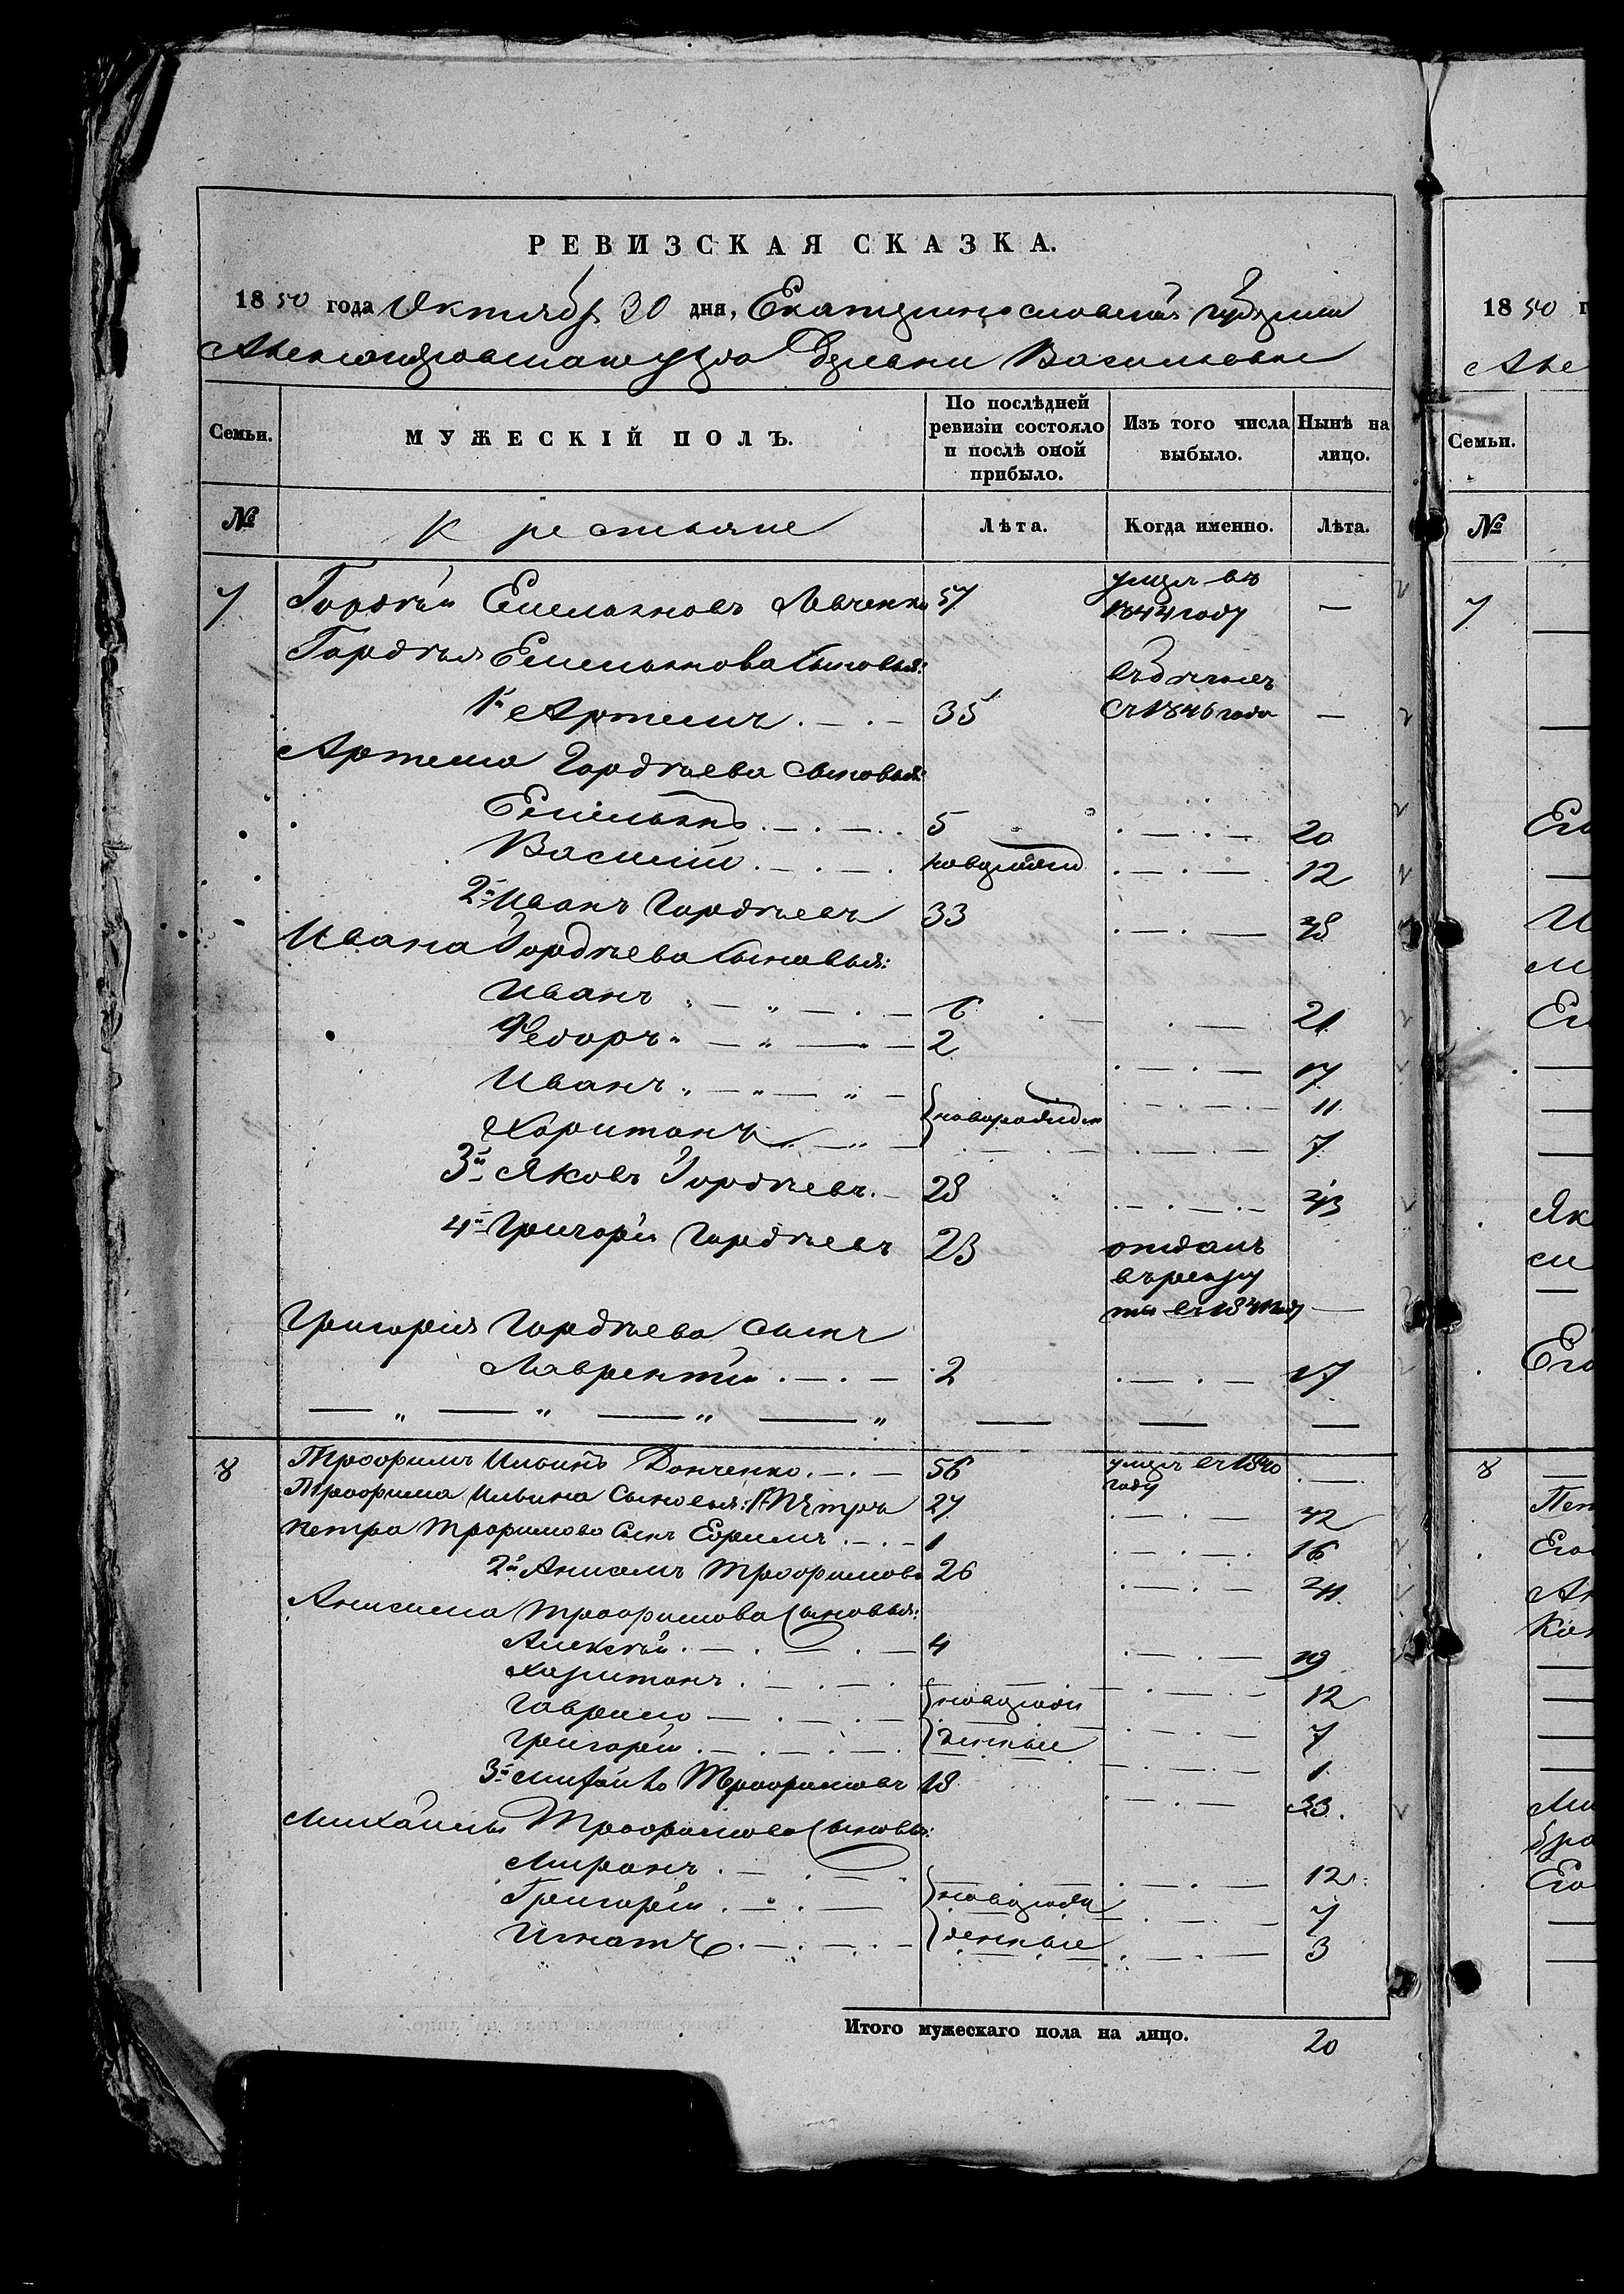 РЕВИЗСКАЯ СКАЗКА.
1850 года Октября 30 дня, Екатеринославской губернии
Александровскаго уезда Деревни Васильевки
Семьи. МУЖЕСКІЙ ПОЛЪ. По послѣдней ревизіи состояло и послѣ оной прибыло. Изъ того числа выбыло. Нынѣ на лицо.
№ Крестьяне Лѣта. Когда именно. Лѣта.
7 Гордѣй Емельяновъ Левченко 57 умеръ въ 1844 году —
Гордѣя Емельянова сыновья:
1й Артемъ 35 въ бѣгахъ съ 1846 года —
Артема Гордѣева сыновья:
Емельянъ 5 20
Василій новорожден 12
2й Иванъ Гордѣевъ 33 48
Ивана Гордѣева сыновья:
Иванъ 6 21
Федоръ 2 17
Иванъ новорожден 11
Харитонъ 7
3й Яковъ Гордѣевъ 28 43
4й Григорій Гордѣевъ 23 отданъ въ рекруты въ 1841 году —
Григорія Гордѣева сынъ
Лаврентій 2 17
8 Трофимъ Ильинъ Донченко 56 умеръ въ 1840 году
Трофима Ильина сыновья: 1й Петръ 27 42
Петра Трофимова сынъ Ефимъ 1 16
2й Анисимъ Трофимовъ 26 41
Анисима Трофимова сыновья:
Алексѣй 4 19
Харитонъ 12
Гаврило новорож 7
Григорій денные 1
3й Михайло Трофимовъ 18 33
Михайлы Трофимова сыновья:
Миронъ 12
Григорій новорож 7
Игнатъ денные 3
Итого мужескаго пола на лицо. 20
1850 г
Але
Семьи.
№
7
Его
И
Ег
Як
Его
8
Пет
Его
Ан
Ми
бра
Его